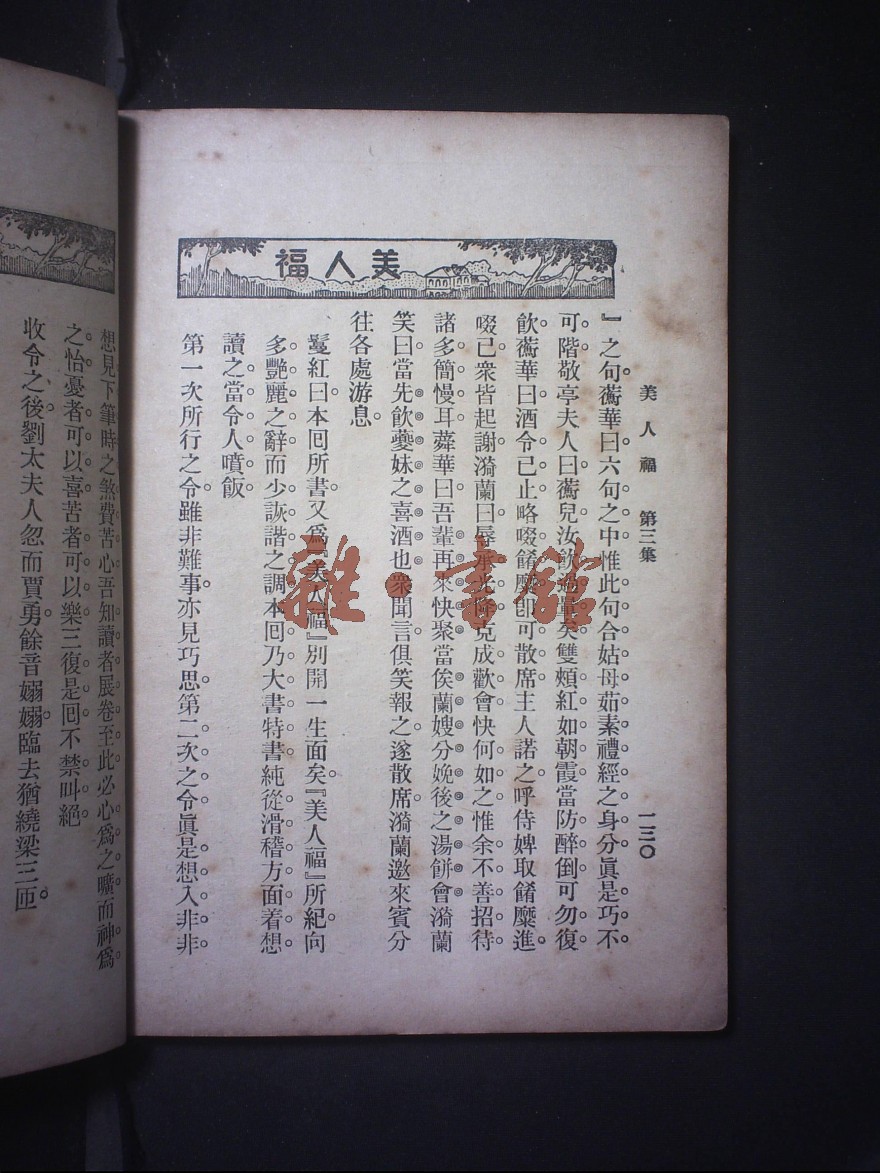 美人福
美人福　第三集　一三〇
』之句蘅華曰六句之中惟此句合姑母茹素禮經之身分眞是巧不
可階敬亭夫人曰蘅兒汝飮過量矣雙頰紅如朝霞當防醉倒可勿復
飮蘅華曰酒令已止略啜餚糜卽可散席主人諾之呼侍婢取餚糜進
啜已衆皆起謝漪蘭曰辱承光降克成歡會快何如之惟余不善招待
諸多簡慢耳蕣華曰吾輩再來快聚當俟蘭嫂分娩後之湯餅會漪蘭
笑曰當先飮夔妹之喜酒也衆聞言俱笑報之遂散席漪蘭邀來賓分
往各處游息。
鬘紅曰本回所書又爲『美人福』別開一生面矣『美人福』所紀向
多艷麗之辭而少詼諧之調本回乃大書特書純從滑稽方面着想
讀之當令人噴飯
第一次所行之令雖非難事亦見巧思第二次之令眞是想入非非
想見下筆時之煞費苦心吾知讀者展卷至此必心爲之曠而神爲
之怡憂者可以喜苦者可以樂三復是回不禁叫絕
收令之後劉太夫人忽而賈勇餘音嫋嫋臨去猶繞梁三匝。
雜·書館